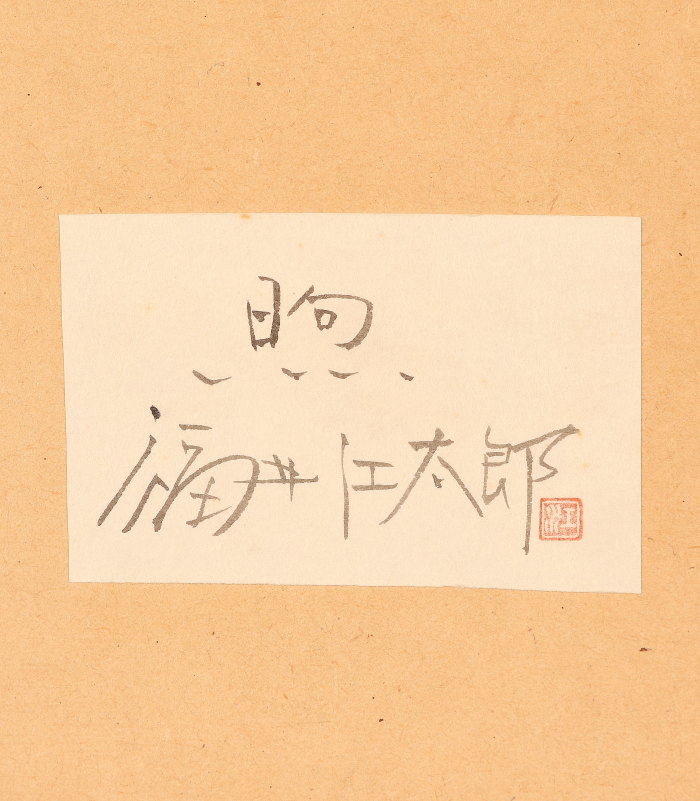 煦
福井江太郎
江